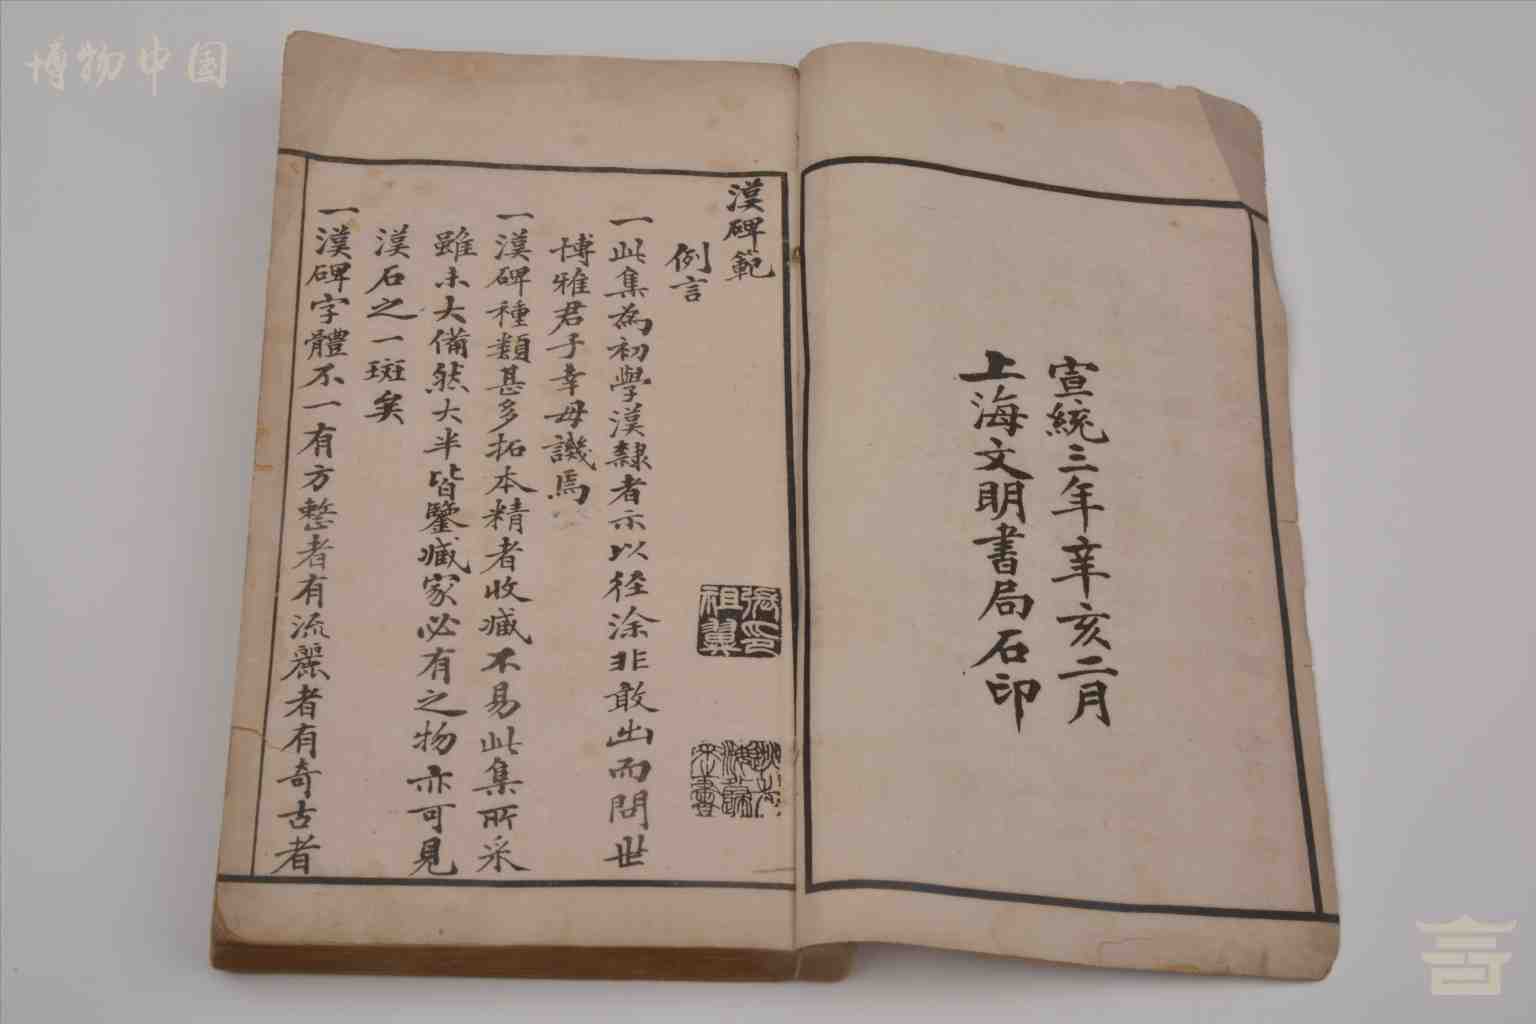 博物中国
宣統三年辛亥二月
上海文明書局石印
漢碑範
例言
一此集為初學漢隸者示以徑涂非敢出而問世
博雅君子幸毋譏焉
一漢碑種類甚多拓本精者收藏不易此集所采
雖未大備然大半皆鑒藏家必有之物亦可見
漢石之一斑矣
一漢碑字體不一有方整者有流麗者有奇古者
張印
祖翼